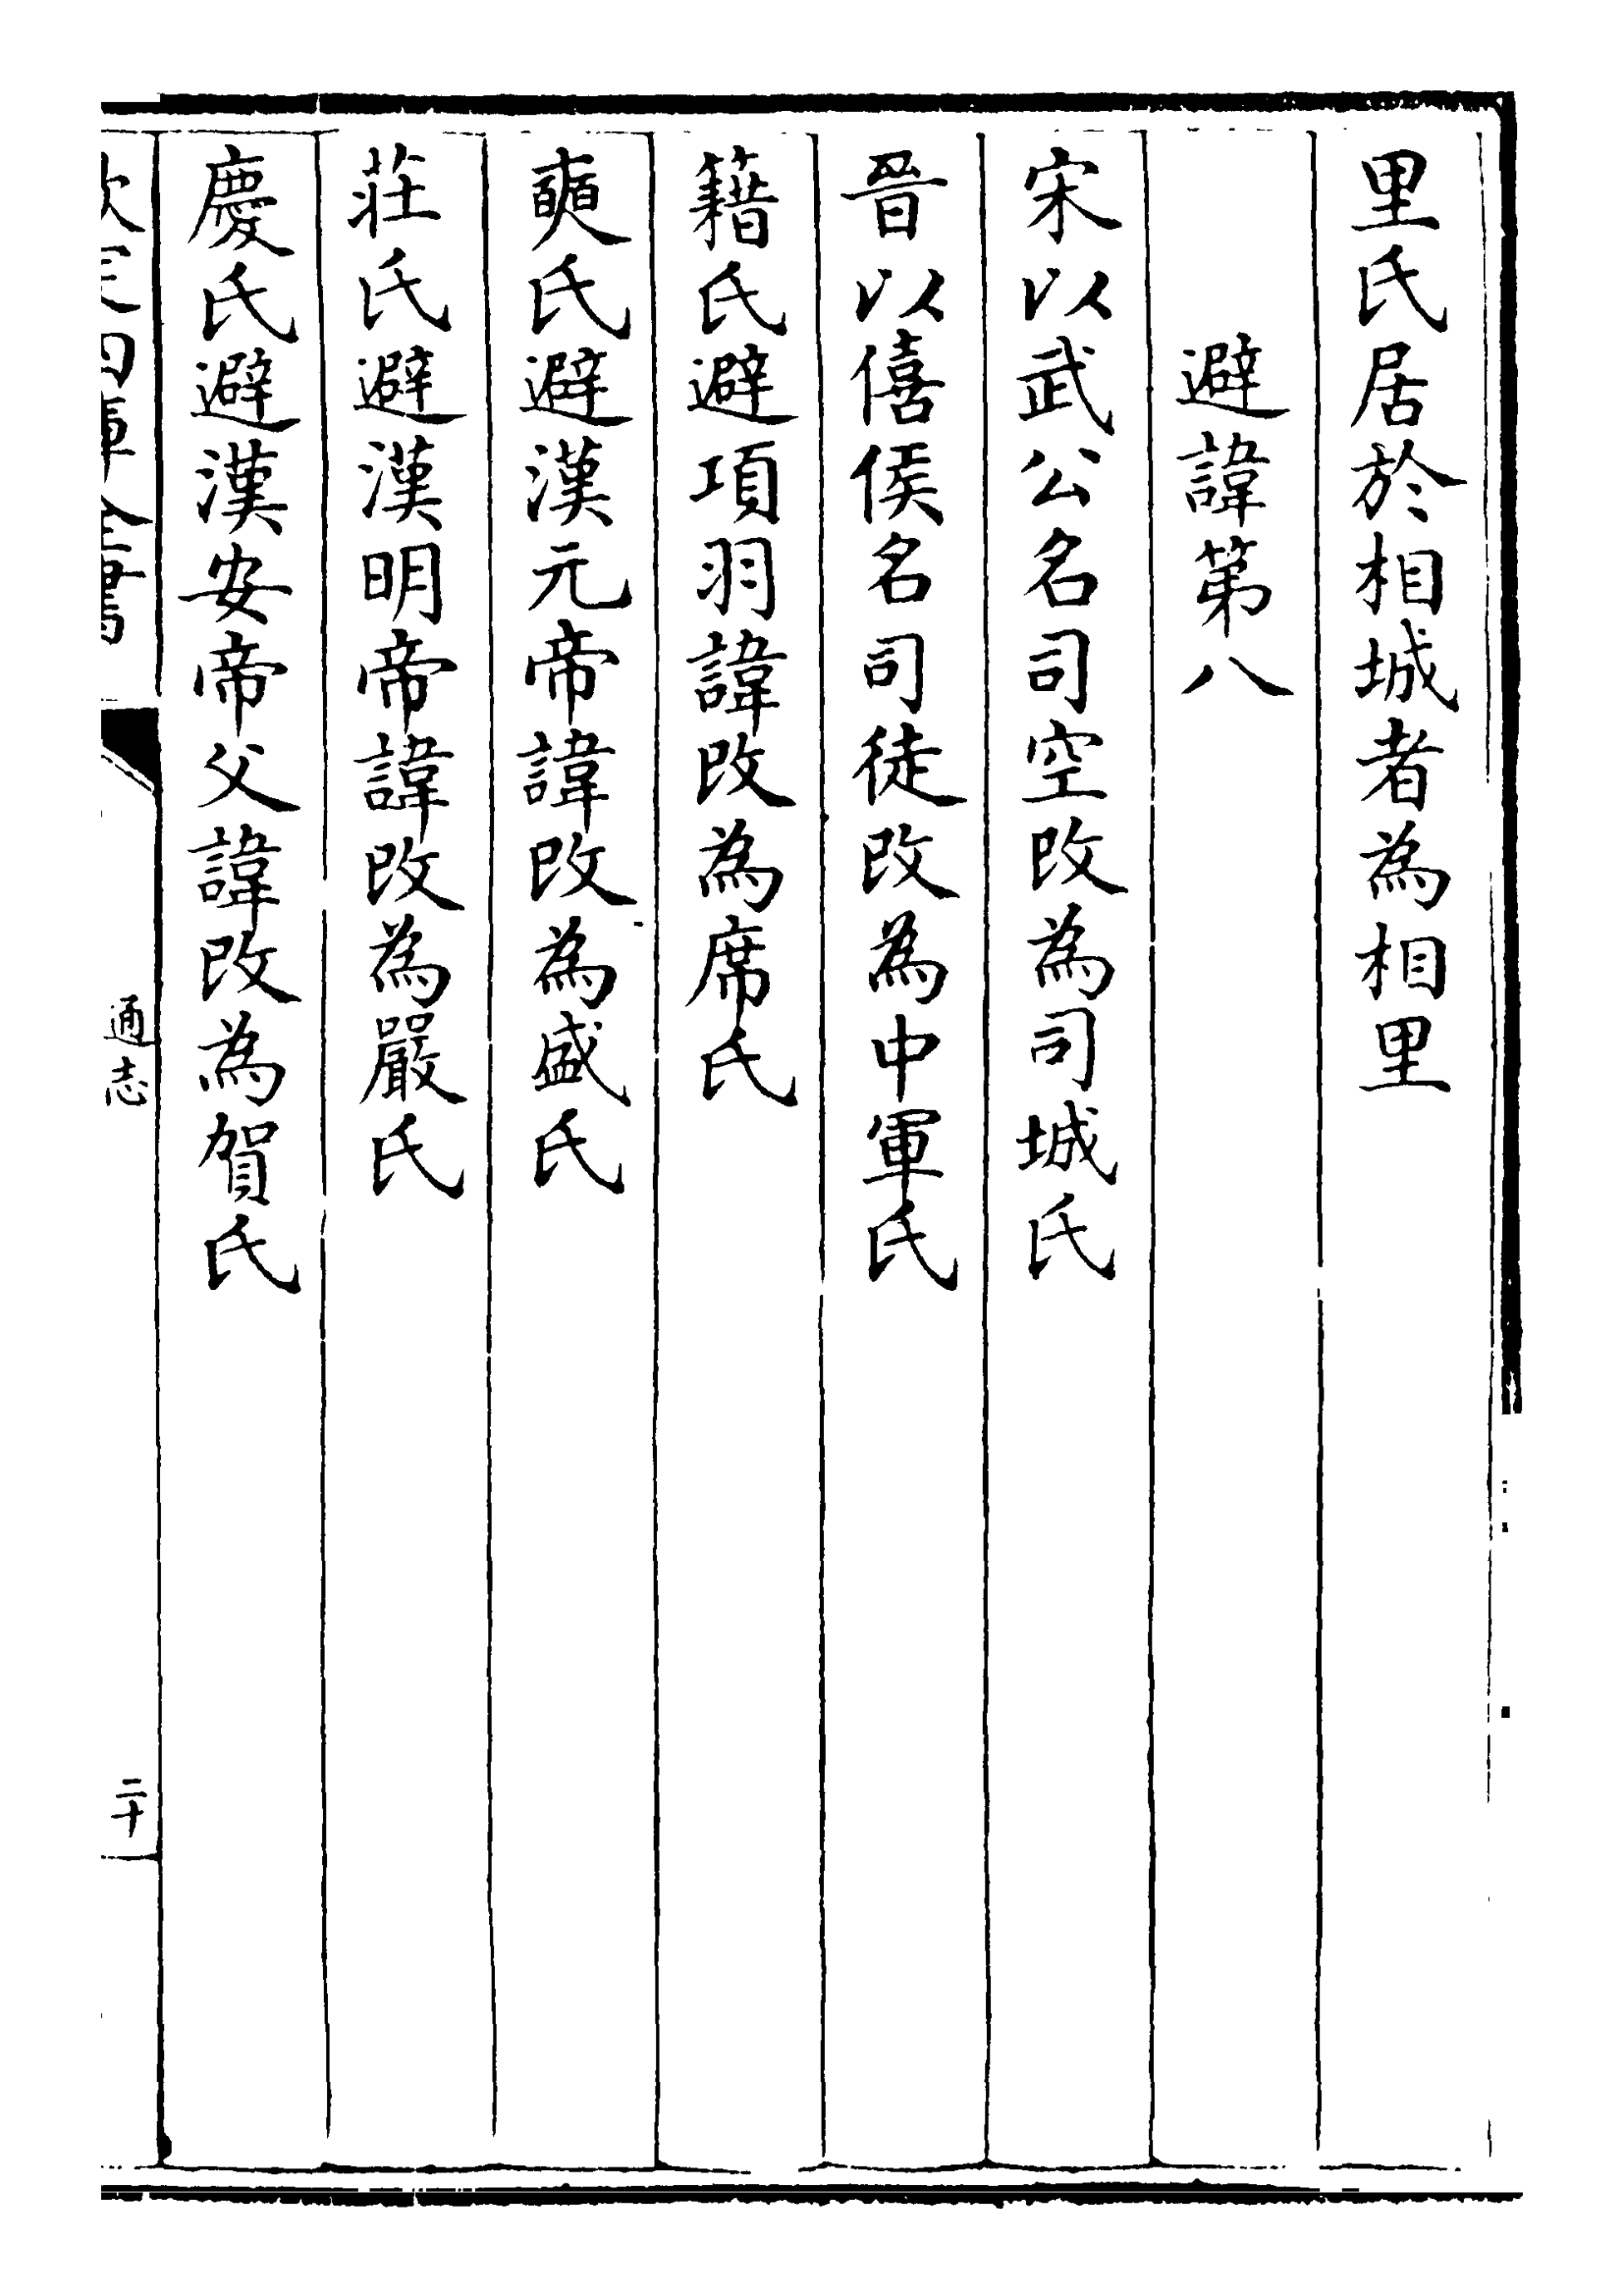 里氏居於相城者為相里
避諱第八
宋以武公名司空改為司城氏
晉以僖侯名司徒改為中軍氏
籍氏避項羽諱改為席氏
奭氏避漢元帝諱改為盛氏
莊氏避漢明帝諱改為嚴氏
慶氏避漢安帝父諱改為賀氏
欽定四庫全書
通志
二十